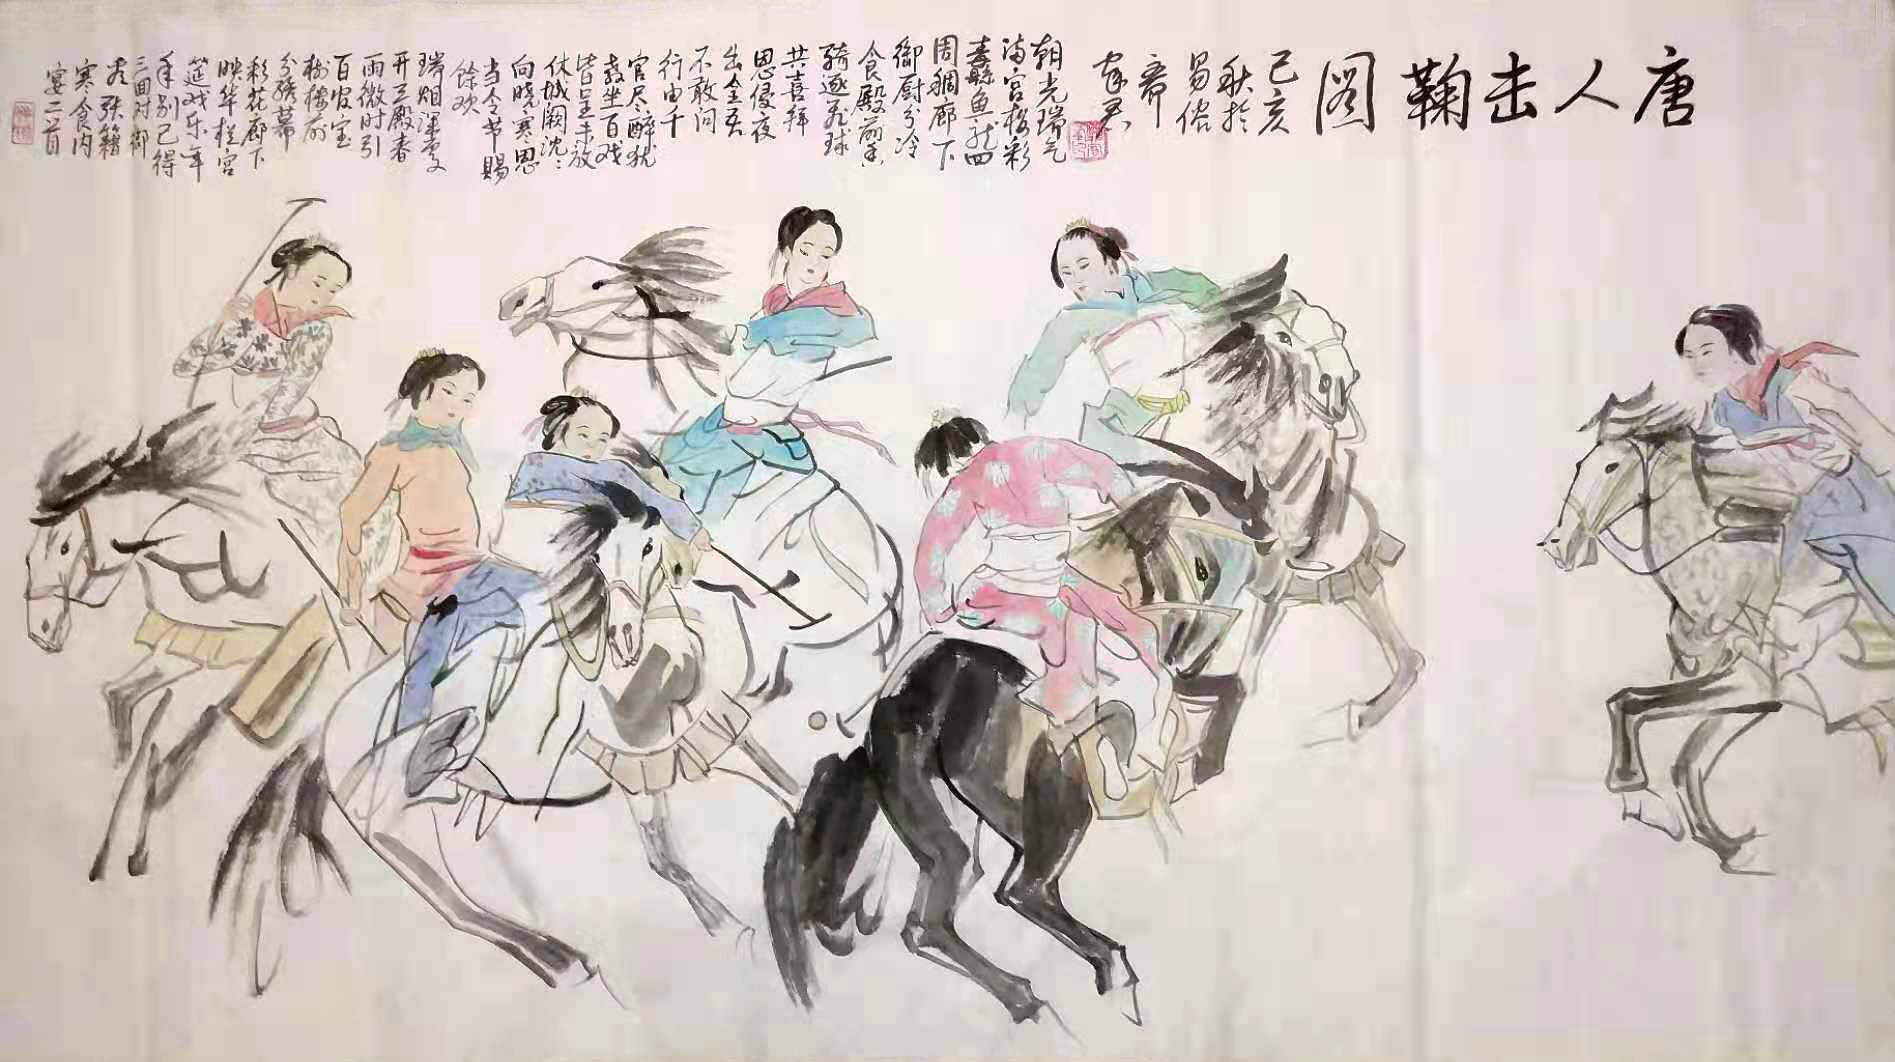 唐人击鞠图
己亥
秋於
易俗
斋
朝光瑞气
满宫楼彩
纛鱼龙四
周稠廊下
御厨分冷
食殿前香
骑逐飞球
共喜拜
恩侵夜
出金吾
不敢问
行由千
官尽醉犹
教坐百戏
皆呈未放
休城阙沈〻
向晓寒恩
当令节赐
馀欢
瑞烟深处
开三殿春
雨微时引
百官宝
树楼前
分绣幕
彩花廊下
映华栏宫
筵戏乐年
年别已得
三回对御
看张籍
寒食内
宴二首